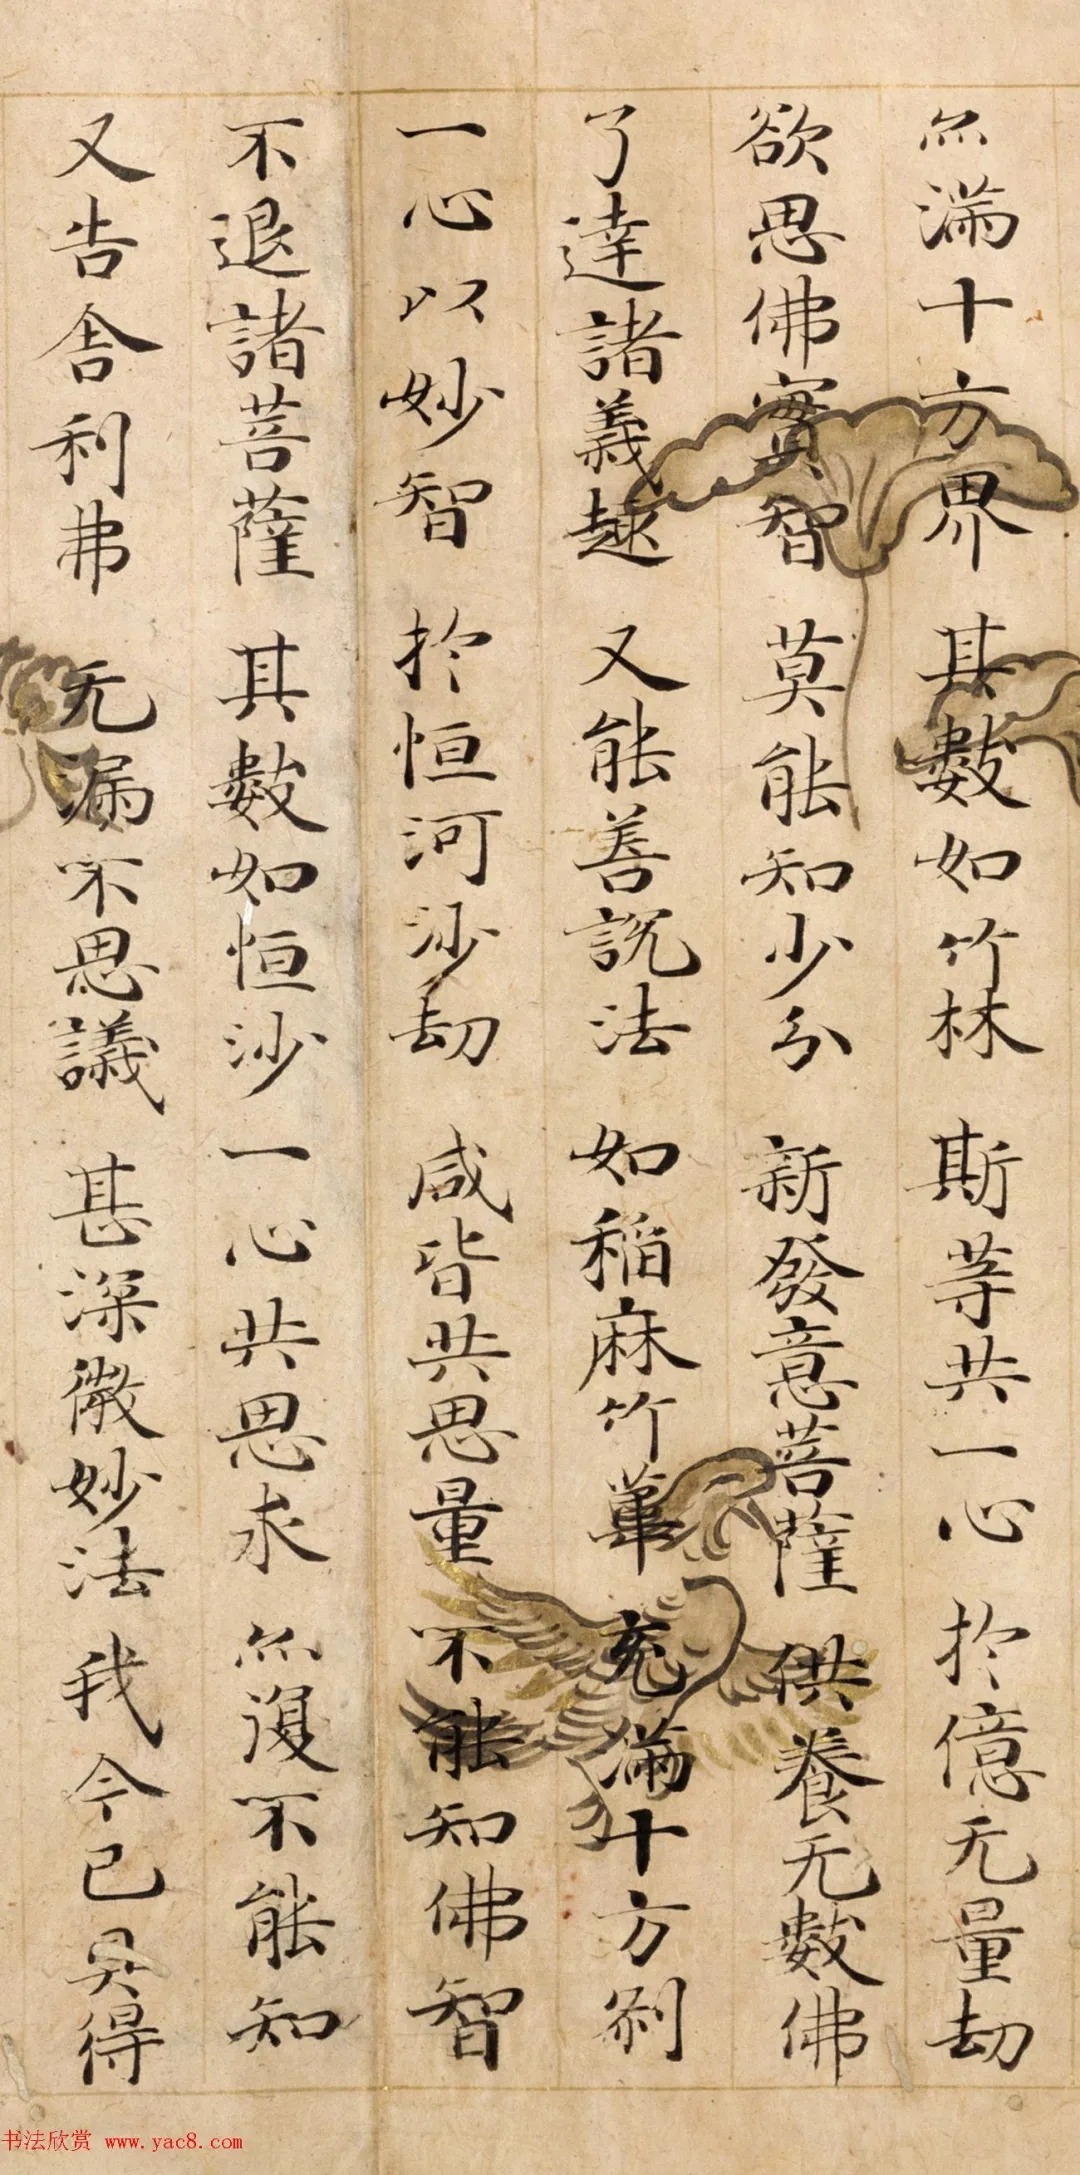 亦滿十方界 其數如竹林 斯等共一心 於億无量劫
欲思佛實智 莫能知少分 新發意菩薩 供養无數佛
了達諸義趣 又能善說法 如稻麻竹葦 充滿十方剎
一心以妙智 於恒河沙劫 咸皆共思量 不能知佛智
不退諸菩薩 其數如恒沙 一心共思求 亦復不能知
又告舍利弗 无漏不思議 甚深微妙法 我今已具得
书法欣赏 www.yac8.com